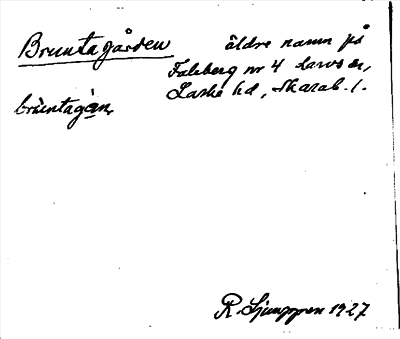 Bruntagården äldre namn på
Faleberg nr 4 Larvs sn,
Laske hd, Skarab. l.
brùntagá̱n,
R. Ljunggren 1927